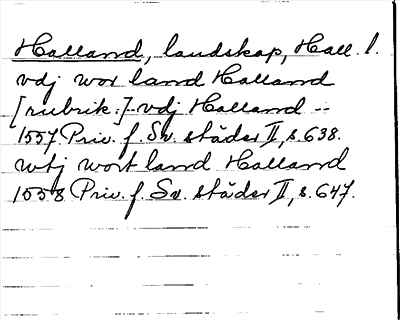 Halland, landskap, Hall. l.
vdj wor land Halland
[rubrik:] - vdj Halland --
1557 Priv. f. Sv. städer II, s. 638.
wtj wort land Halland
1558 Priv. f. Sv. städer II, s. 647.